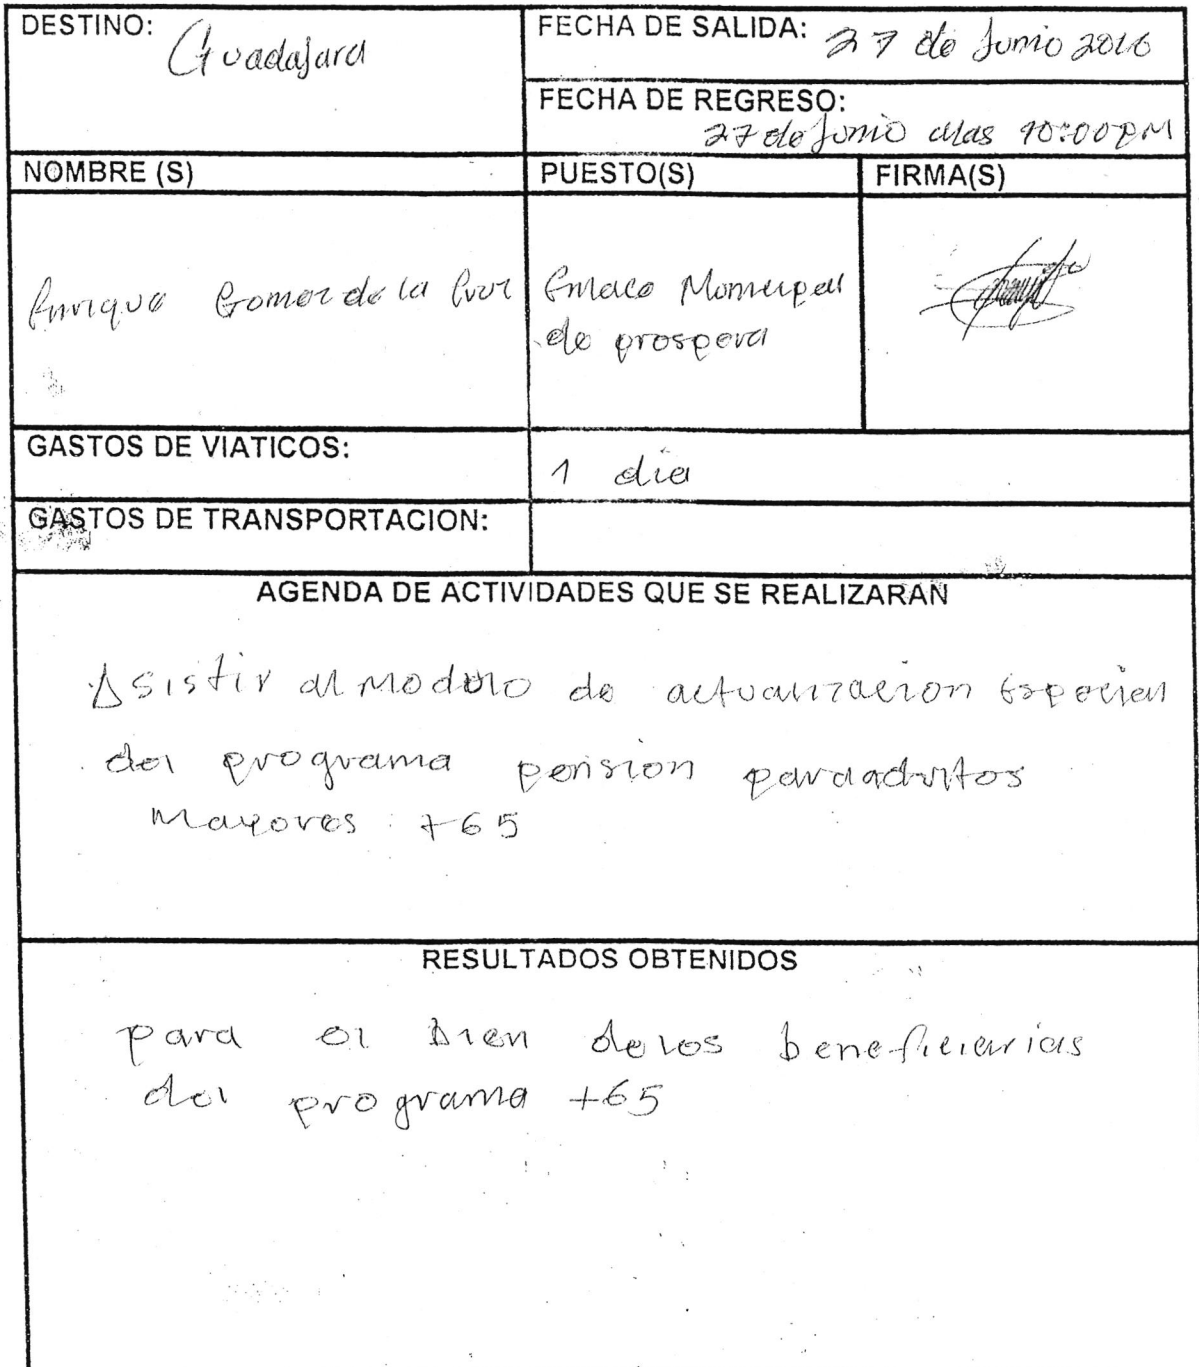 DESTINO: Guadajara
FECHA DE SALIDA: 27 de Junio 2016
FECHA DE REGRESO:
27 de Junio alas 10:00 PM
NOMBRE (S)
PUESTO(S)
FIRMA(S)
Enrique Gomez de la Cruz
Enlace Municipal
de prospera
GASTOS DE VIATICOS:
1 dia
GASTOS DE TRANSPORTACION:
AGENDA DE ACTIVIDADES QUE SE REALIZARAN
Asistir al Modulo de actualizacion Especial
del programa pension para adultos
Mayores +65
RESULTADOS OBTENIDOS
para el bien de los beneficiarias
del programa +65